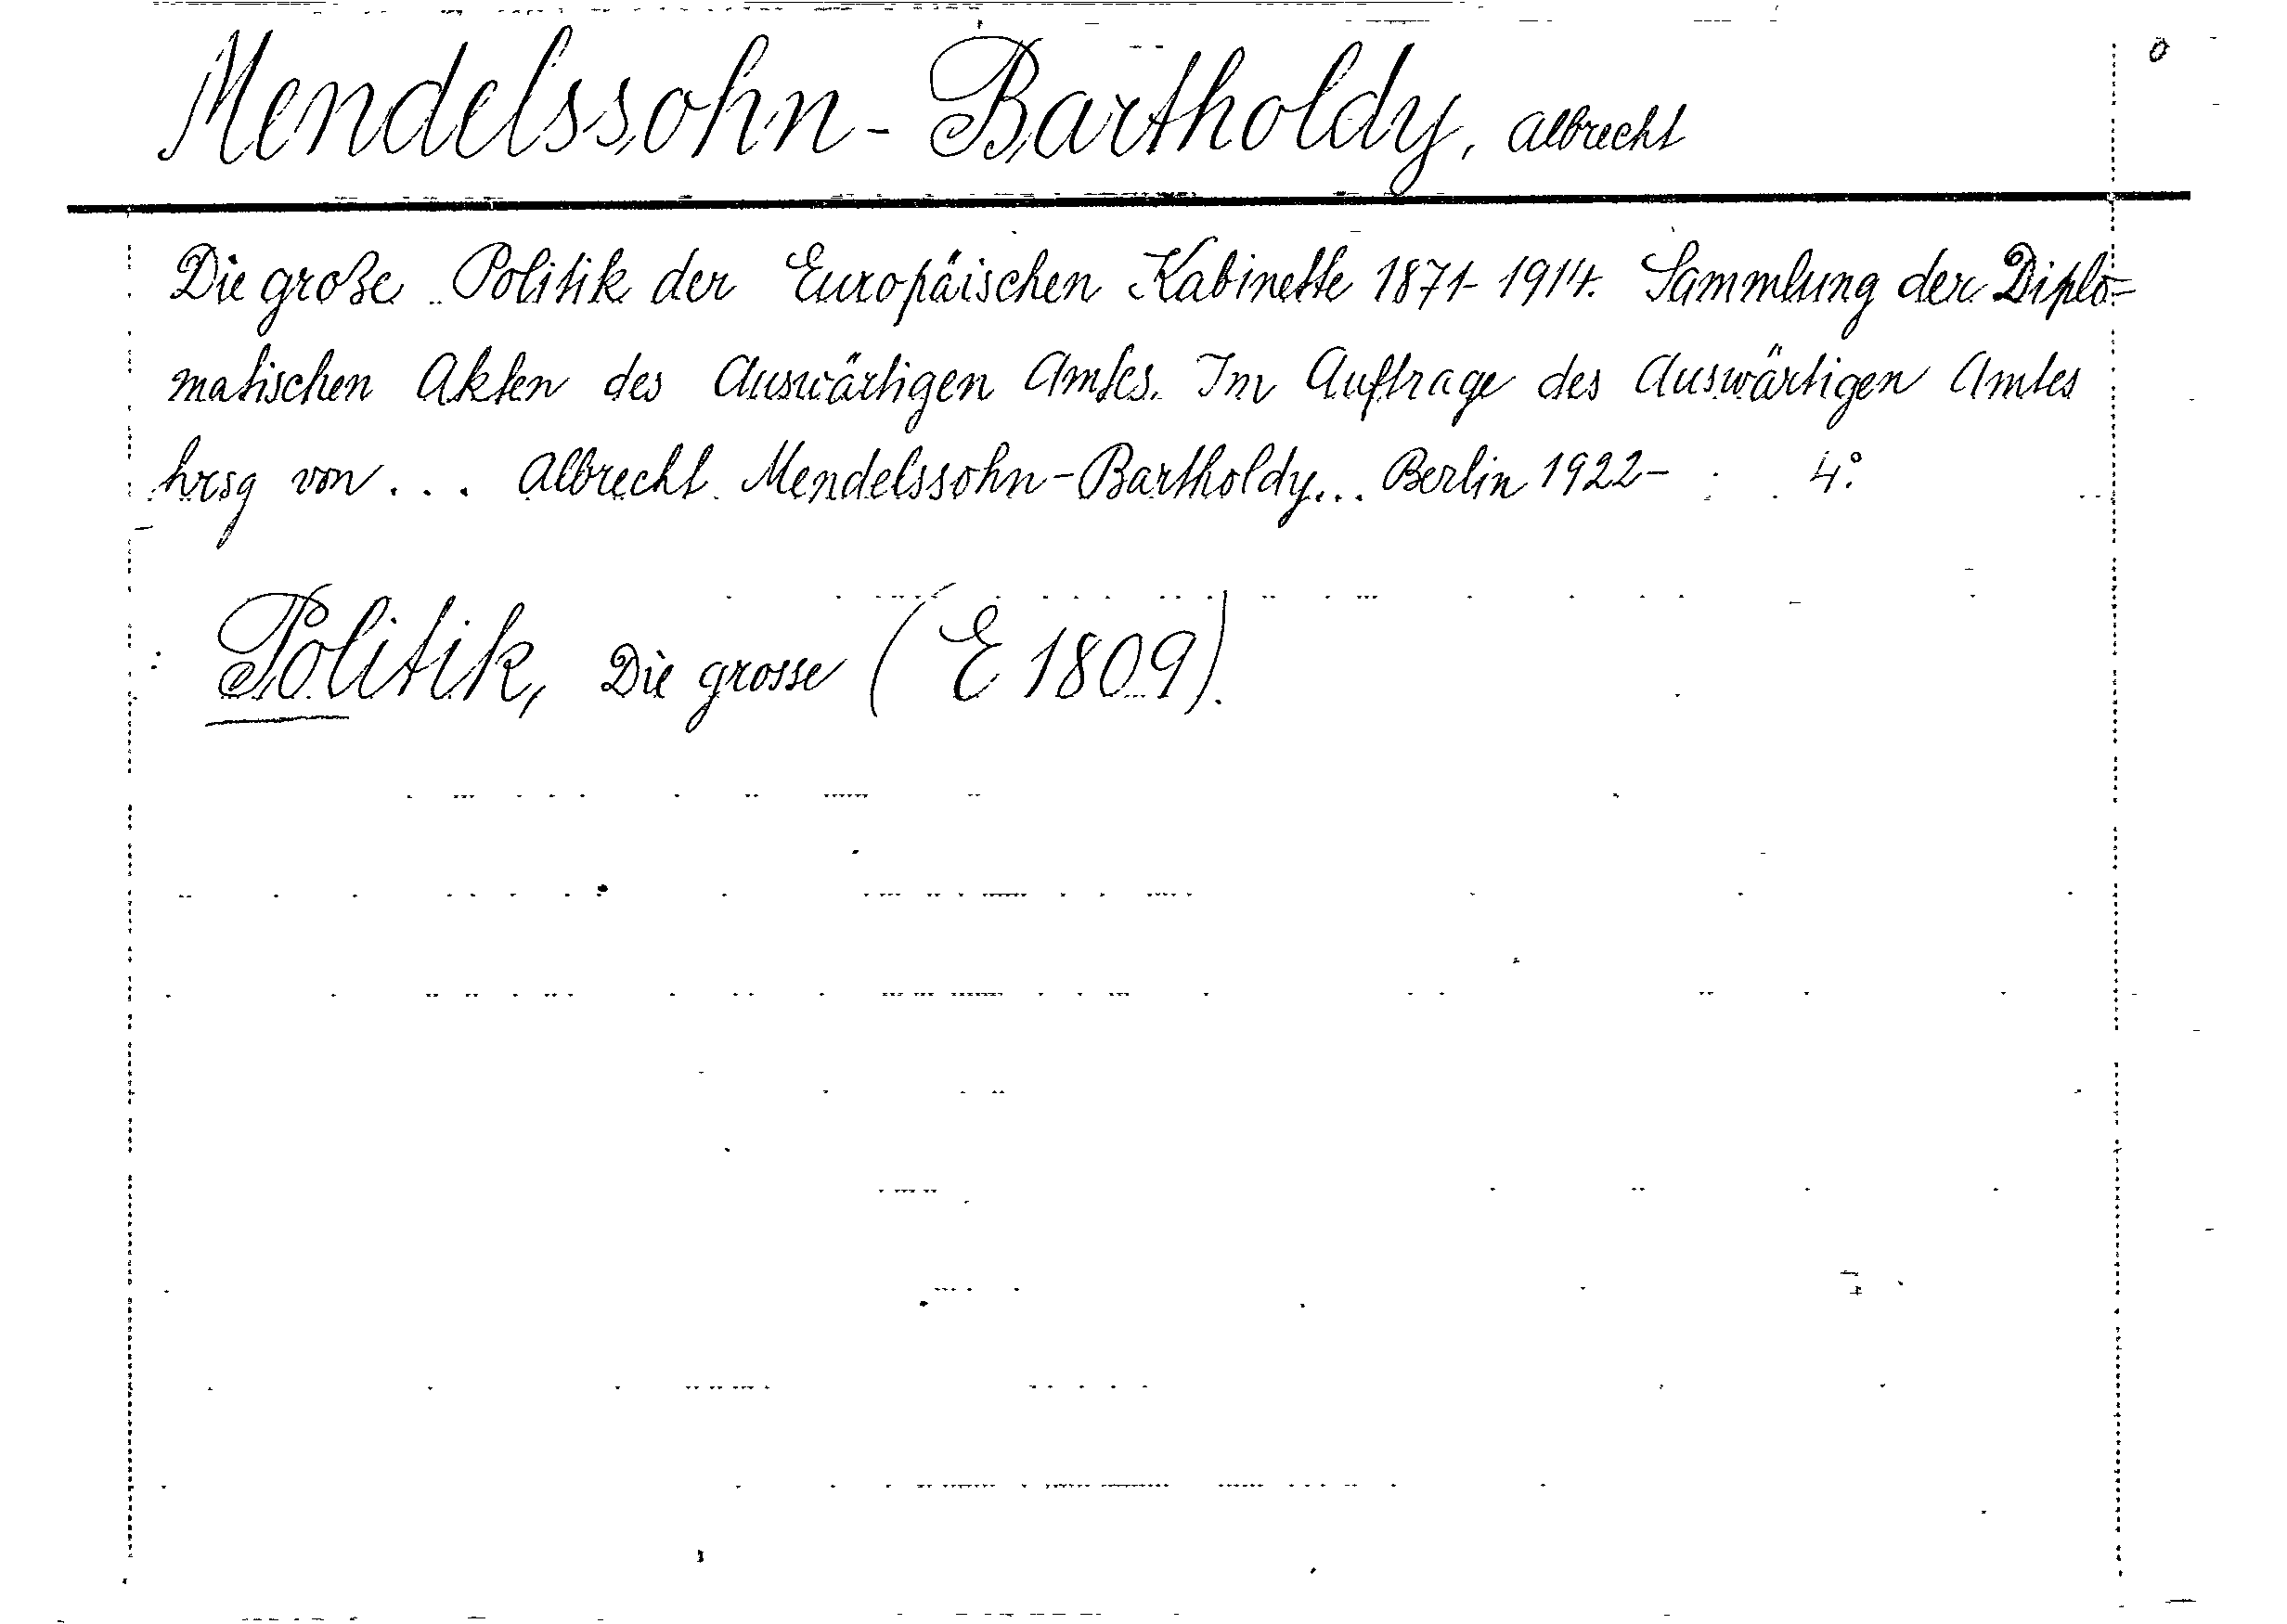 Mendelssohn-Bartholdy, Albrecht
Die große Politik der Europäischen Kabinette 1871-1914. Sammlung der Diplo=
matischen Akten des Auswärtigen Amtes. Im Auftrage des Auswärtigen Amtes
hrsg von... Albrecht Mendelssohn-Bartholdy... Berlin 1922- 4°.
Politik, Die grosse (E 1809).